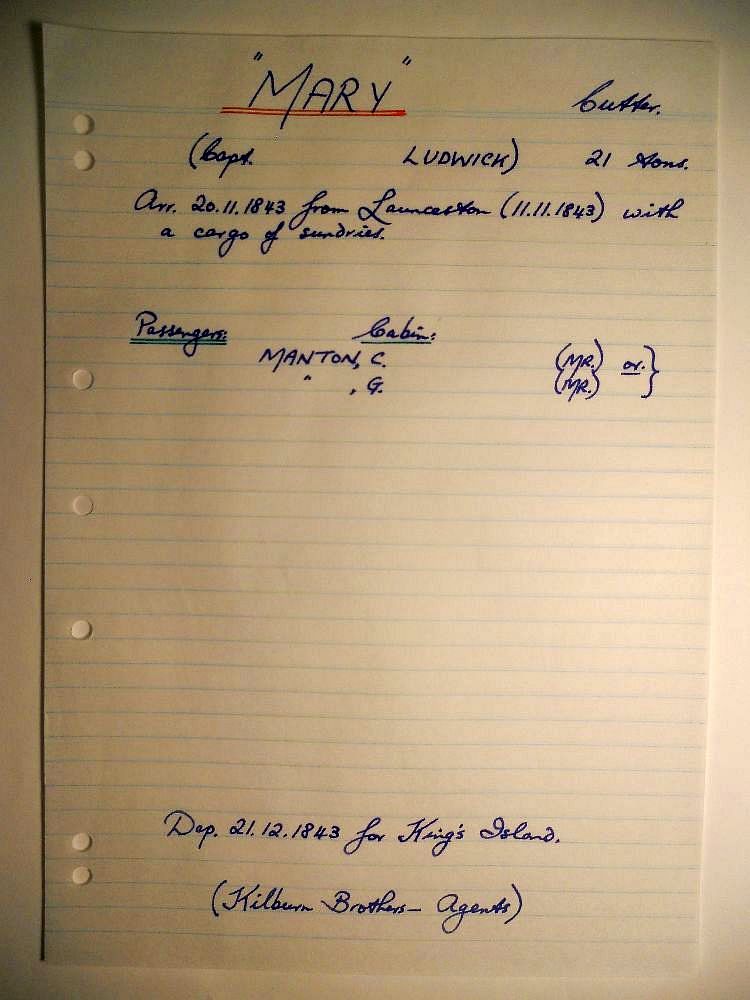 "MARY" Cutter.
(Capt. LUDWICK) 21 tons.
Arr. 20.11.1843 from Launceston (11.11.1843) with
a cargo of sundries.
Passengers: Cabin:
MANTON, C. (MR.) or.}
" , G. (MR.)
Dep. 21.12.1843 for King's Island.
(Kilburn Brothers - Agents)